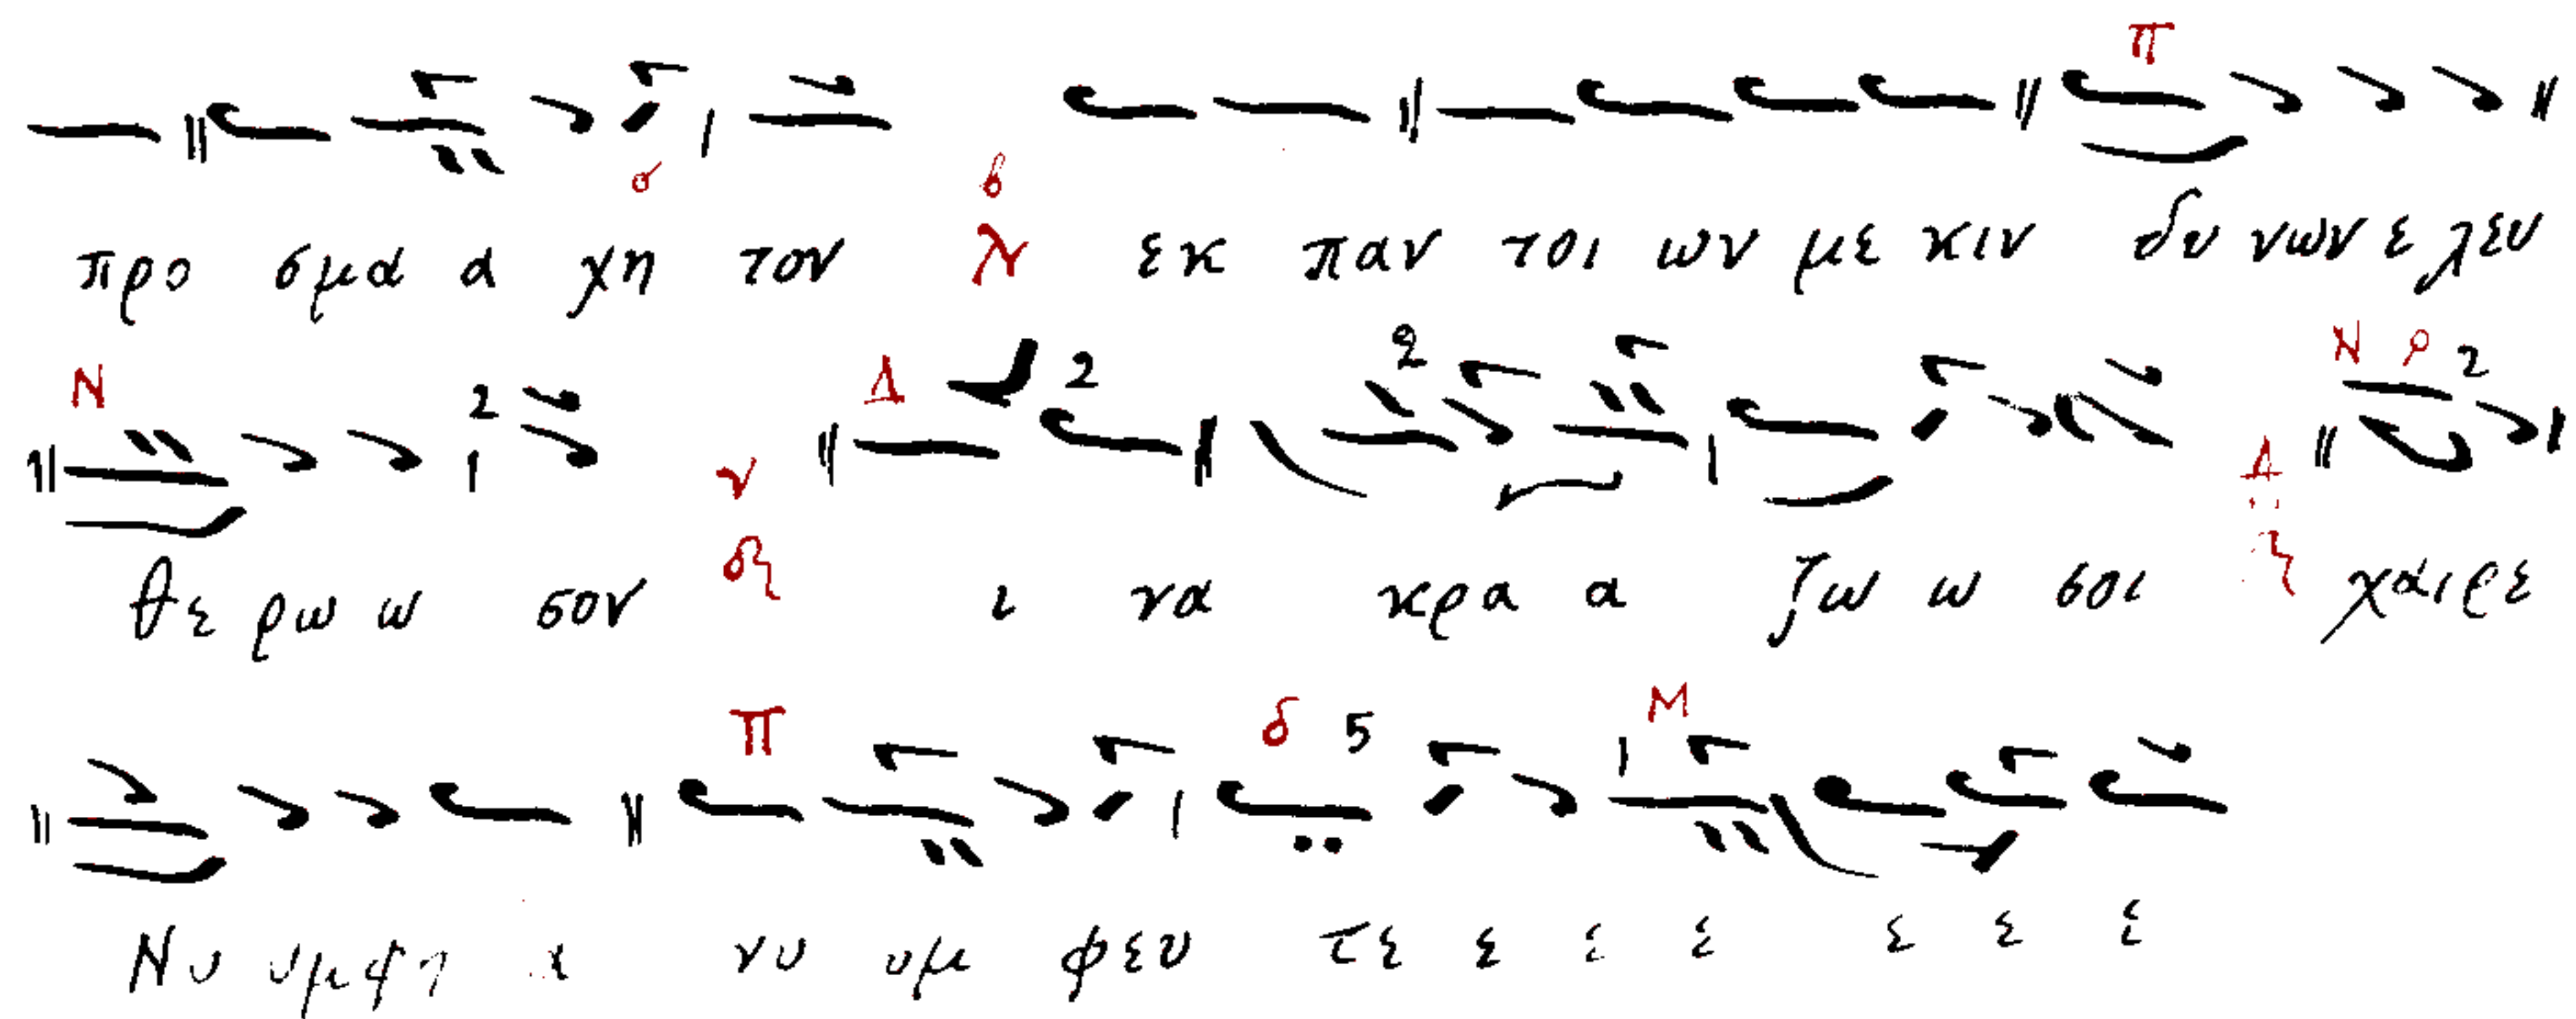 π
σ β
προ σμα α χη τον λ εκ παν τοι ων με κιν δυ νων ε λευ
Ν 2 Δ 2 2 Ν ρ 2
ν Δ
θε ρω ω σον δη ι να κρα α ζω ω σοι χαιρε
Π δ 5 Μ
Νυ υμφη α νυ υμ φευ τε ε ε ε ε ε ε